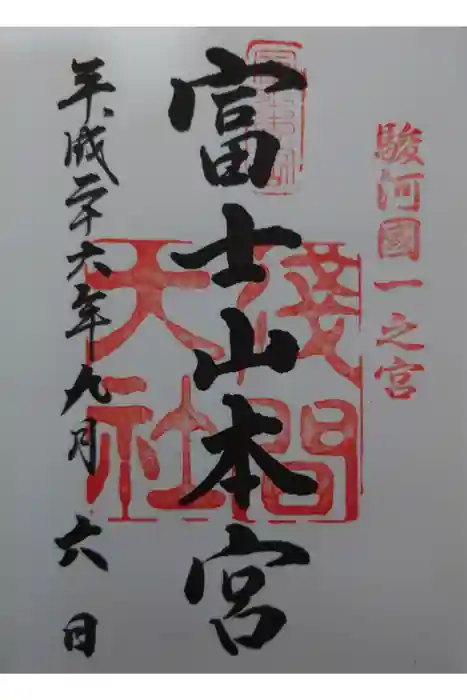 駿河國一之宮
富士山本宮
淺間
大社
平成二十六年九月 六日